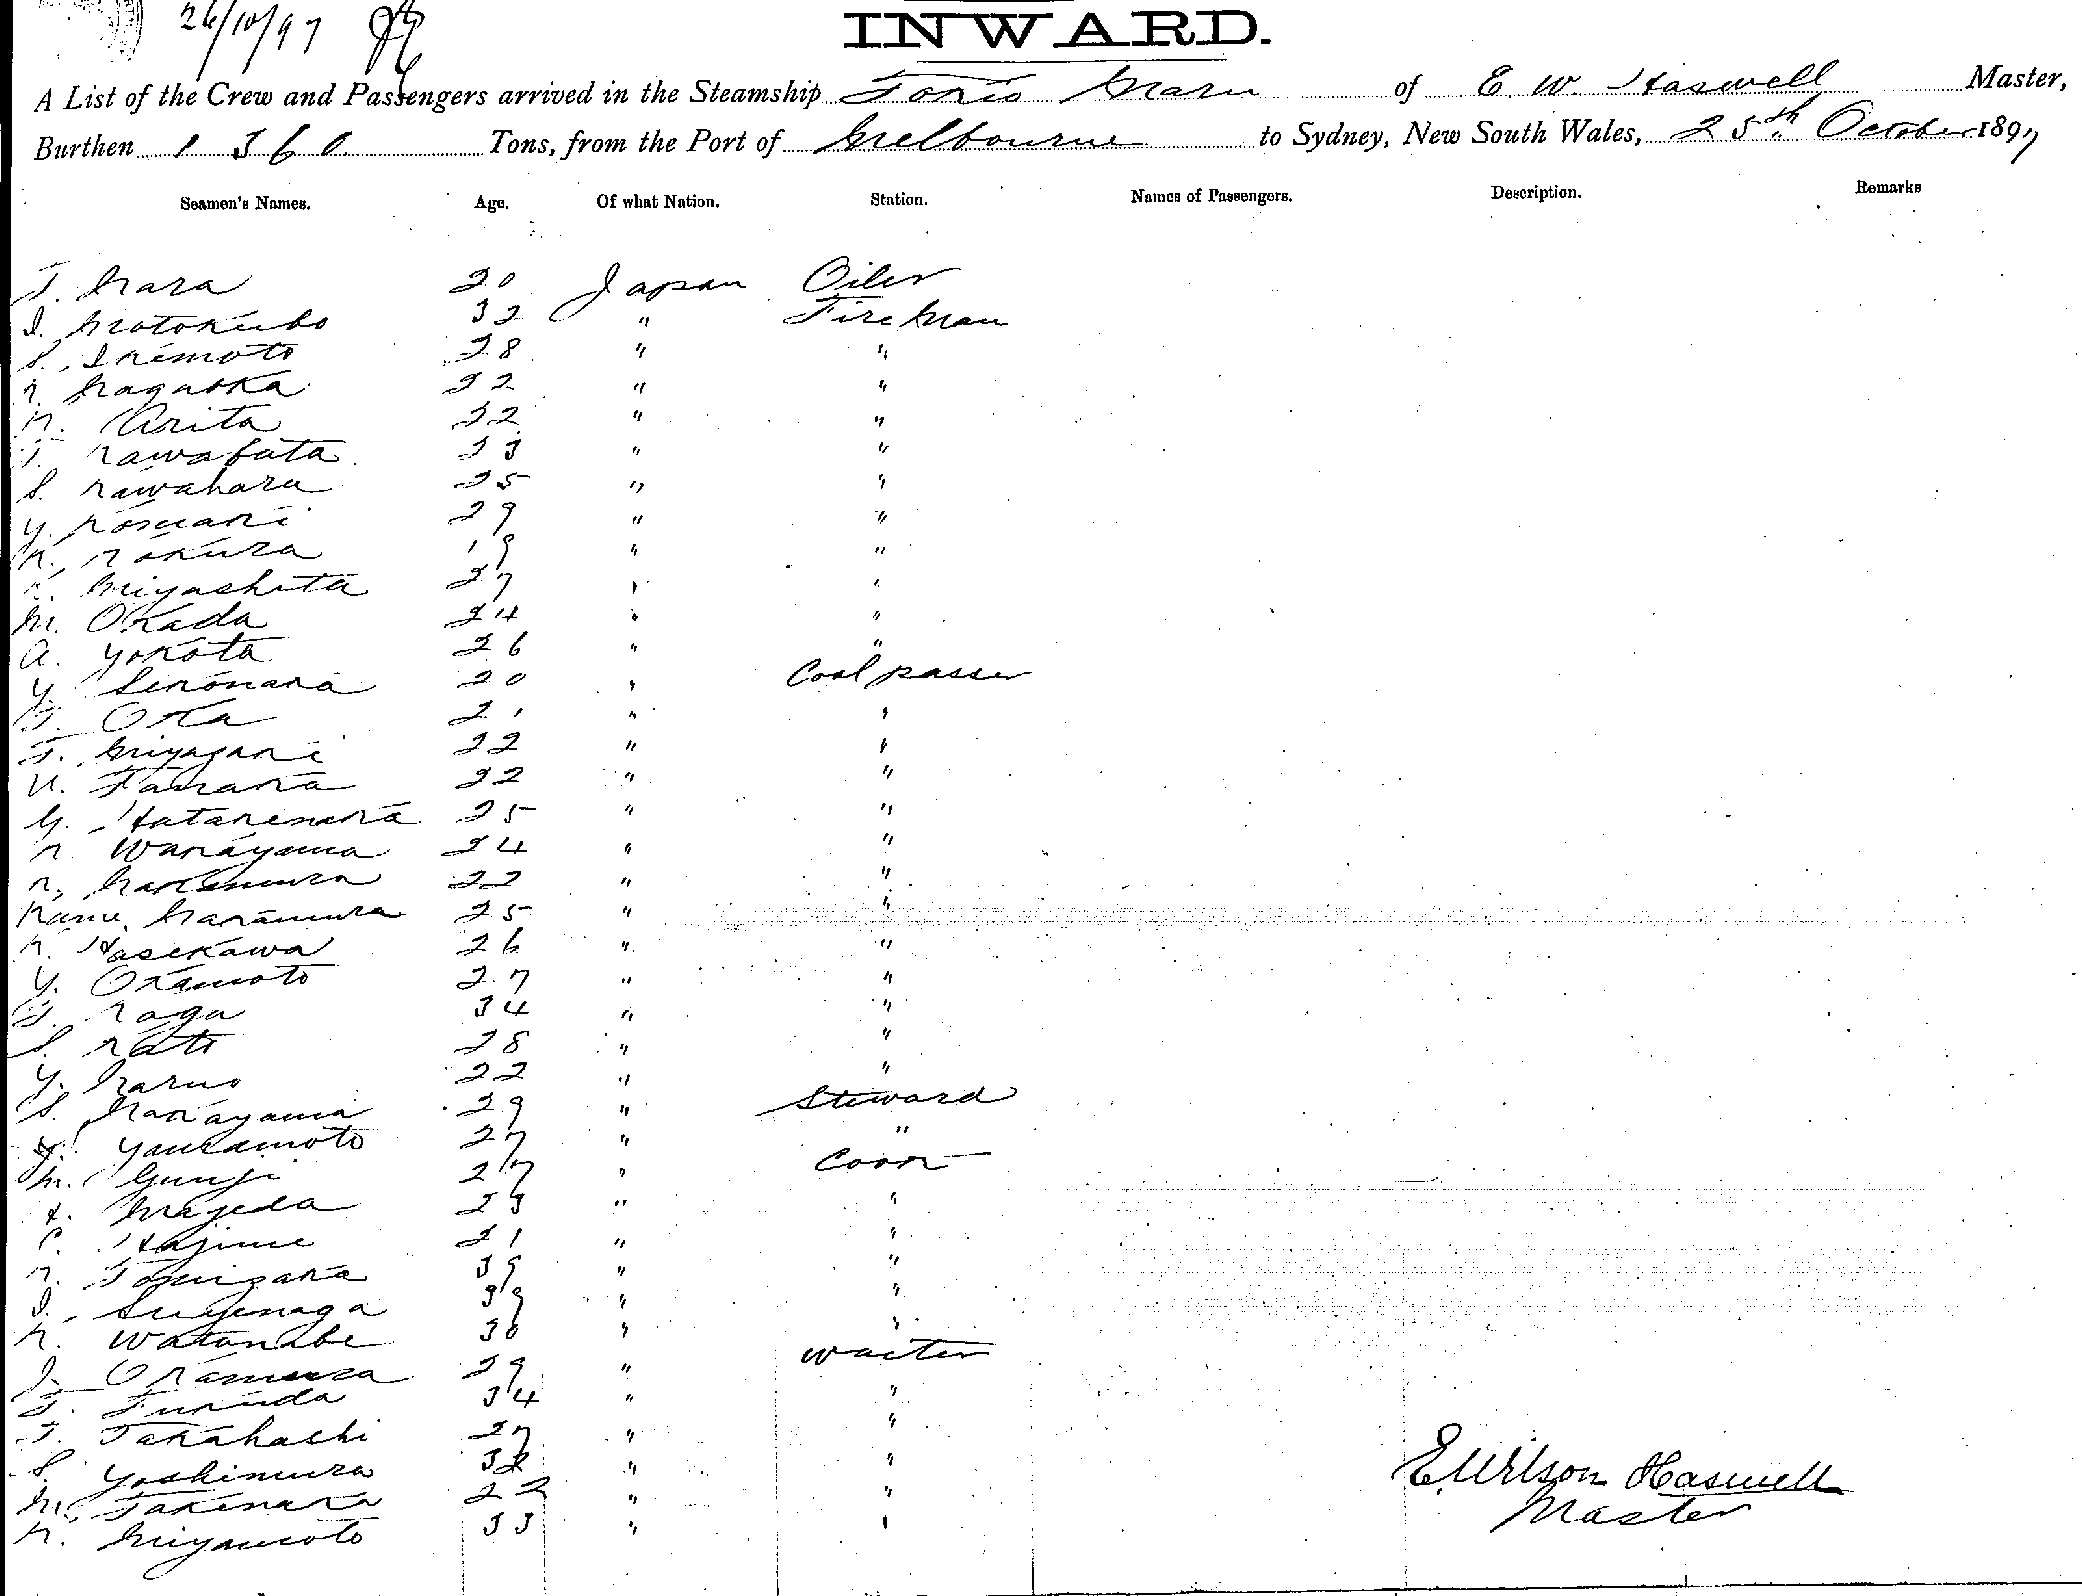 26/10/97
INWARD.
A List of the Crew and Passengers arrived in the Steamship Tokio Maru of E. W. Haswell Master,
Burthen 1360 Tons, from the Port of Melbourne to Sydney, New South Wales, 25th October 1897
Seamen's Names. Age. Of what Nation. Station. Names of Passengers. Description. Remarks
T. Nara 20 Japan Oiler
I. Motokubo 32 " Fireman
S. Ikemoto 28 " "
Nagaoka 22 " "
K. Arita 22 " "
T. Kawabata 23 " "
S. Kawahara 25 " "
Y. Komaki 29 " "
K. Kokura 19 " "
K. Miyashita 27 " "
M. Okada 24 " "
A. Yokota 26 " "
Y. 20 " Coal passer
T. Oka 21 " "
T. Miyazaki 22 " "
U. Tanaka 22 " "
25 " "
K. Wakayama 24 " "
K. Nakamura 22 " "
Nakamura 25 " "
K. Hasekawa 26 " "
Y. Okamoto 27 " "
T. Koga 34 " "
S. Kato 28 " "
Y. Haruo 22 " "
S. Nakayama 29 " Steward
Yamamoto 27 " "
M. Gunji 27 " Cook
Mayeda 23 " "
Hajime 21 " "
K. Tomizaka 39 " "
I. Suyenaga 39 " "
K. Watanabe 30 " "
Okamura 29 " waiter
T. Fukuda 34 " "
T. Takahashi 27 " "
S. Yoshimura 32 " "
M. Takenaka 22 " "
K. Miyamoto 33 " "
E. Wilson Haswell
Master